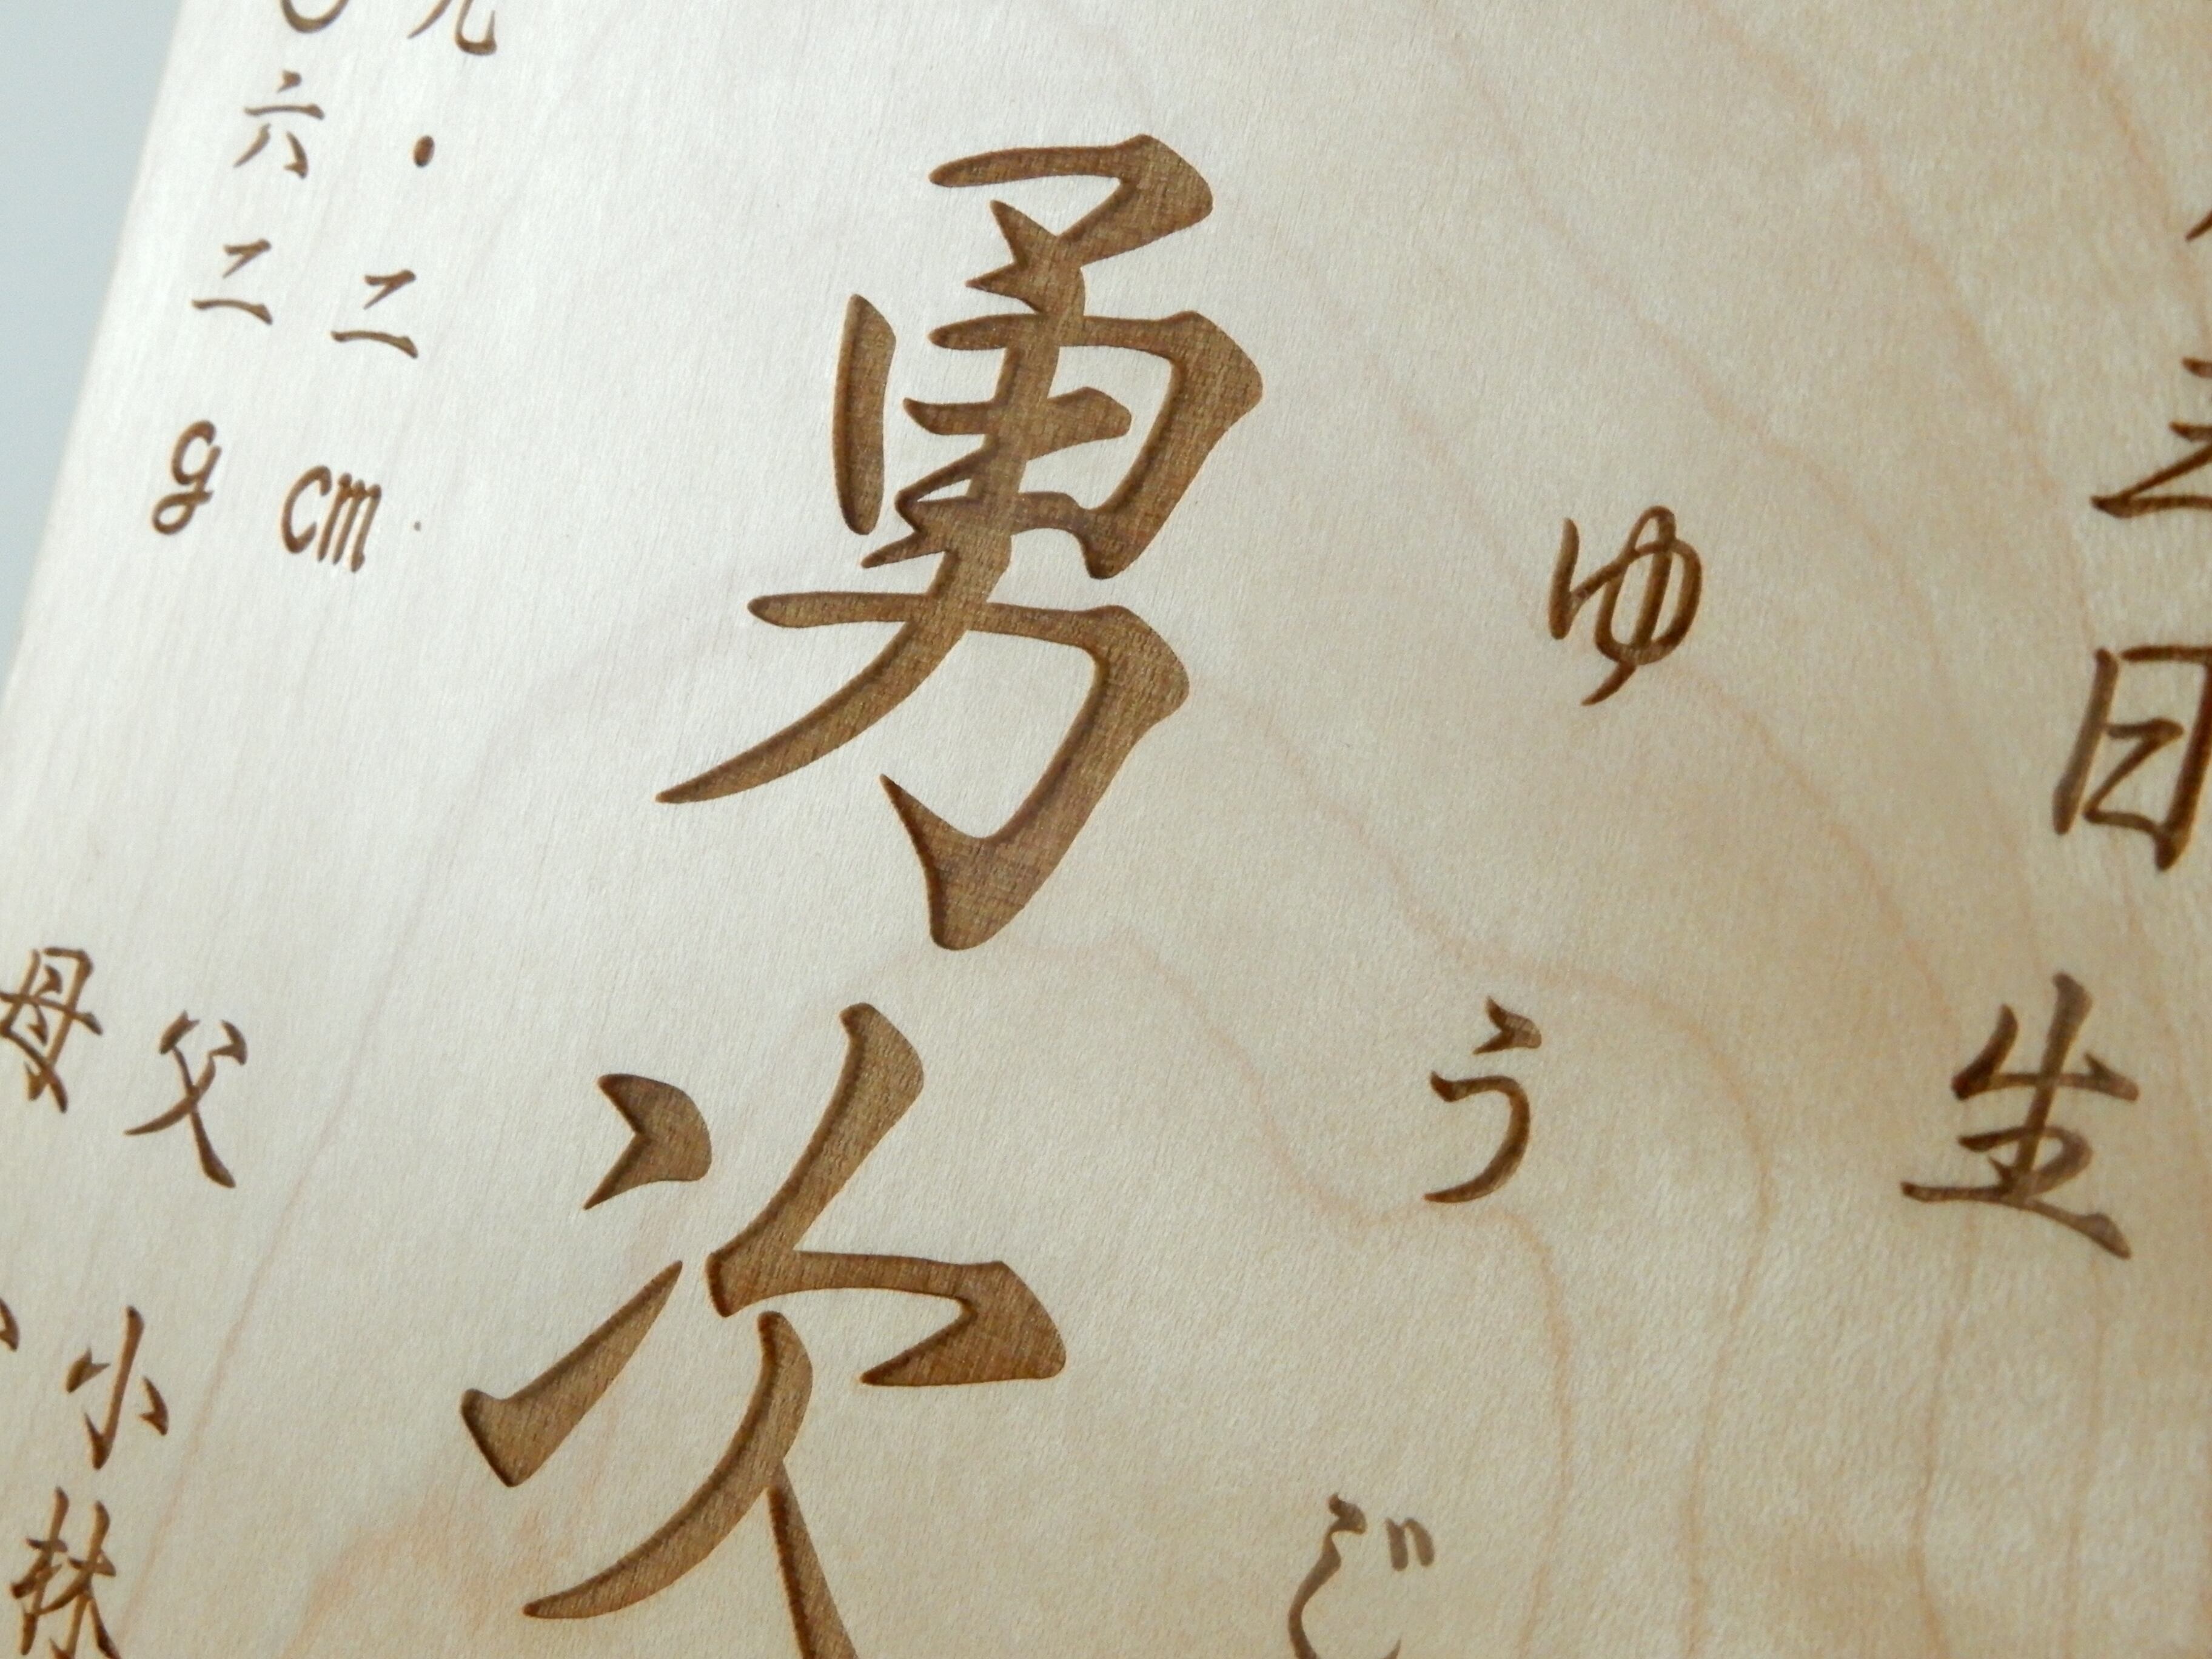 日生
ゆうじ
勇次
九・二cm
〇六二g
父 小林
母